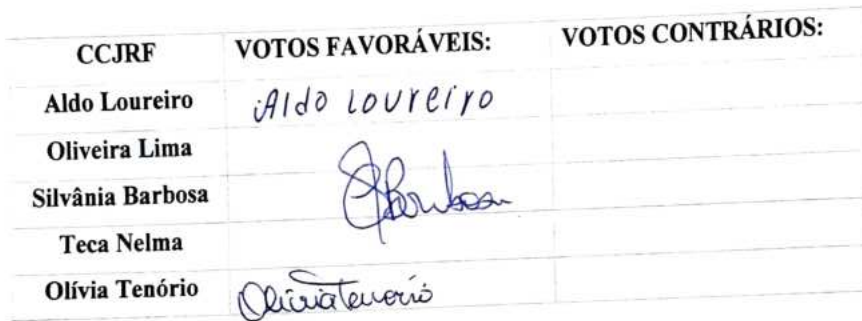 CCJRF VOTOS FAVORÁVEIS: VOTOS CONTRÁRIOS:
Aldo Loureiro Aldo Loureiro
Oliveira Lima
Silvânia Barbosa SBarbosa
Teca Nelma
Olívia Tenório Olívia Tenório